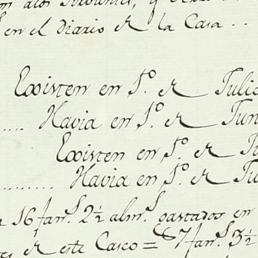 en el Diario de la Casa..
Existen en 1º. de Julio
Havia en 1º. de Jun
Existen en 1º. de Ju
Havia en 1º. de Ju
16 fan.s 2½ alm.s gastados en
de este Casco = 87 fan.s 3½